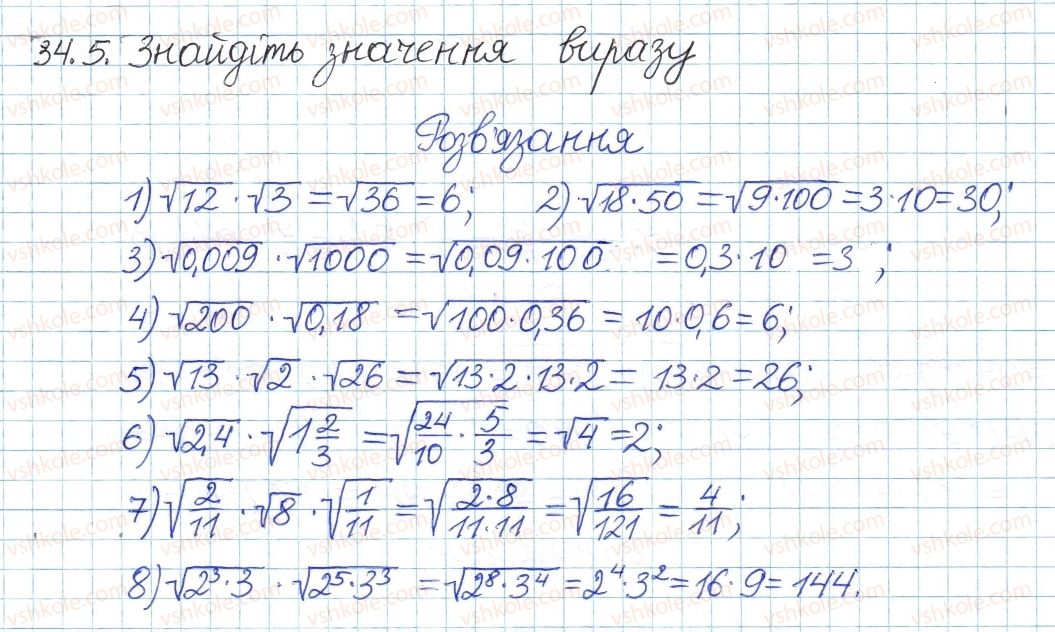 34.5. Знайдіть значення виразу
Розв'язання
1) √12 · √3 = √36 = 6; 2) √18·50 = √9·100 = 3·10 = 30;
3) √0,009 · √1000 = √0,09·100 = 0,3·10 = 3 ;
4) √200 · √0,18 = √100·0,36 = 10·0,6 = 6;
5) √13 · √2 · √26 = √13·2·13·2 = 13·2 = 26;
6) √2,4 · √1 2/3 = √24/10 · 5/3 = √4 = 2;
7) √2/11 · √8 · √1/11 = √2·8/11·11 = √16/121 = 4/11;
8) √2³·3 · √2⁵·3³ = √2⁸·3⁴ = 2⁴·3² = 16·9 = 144.